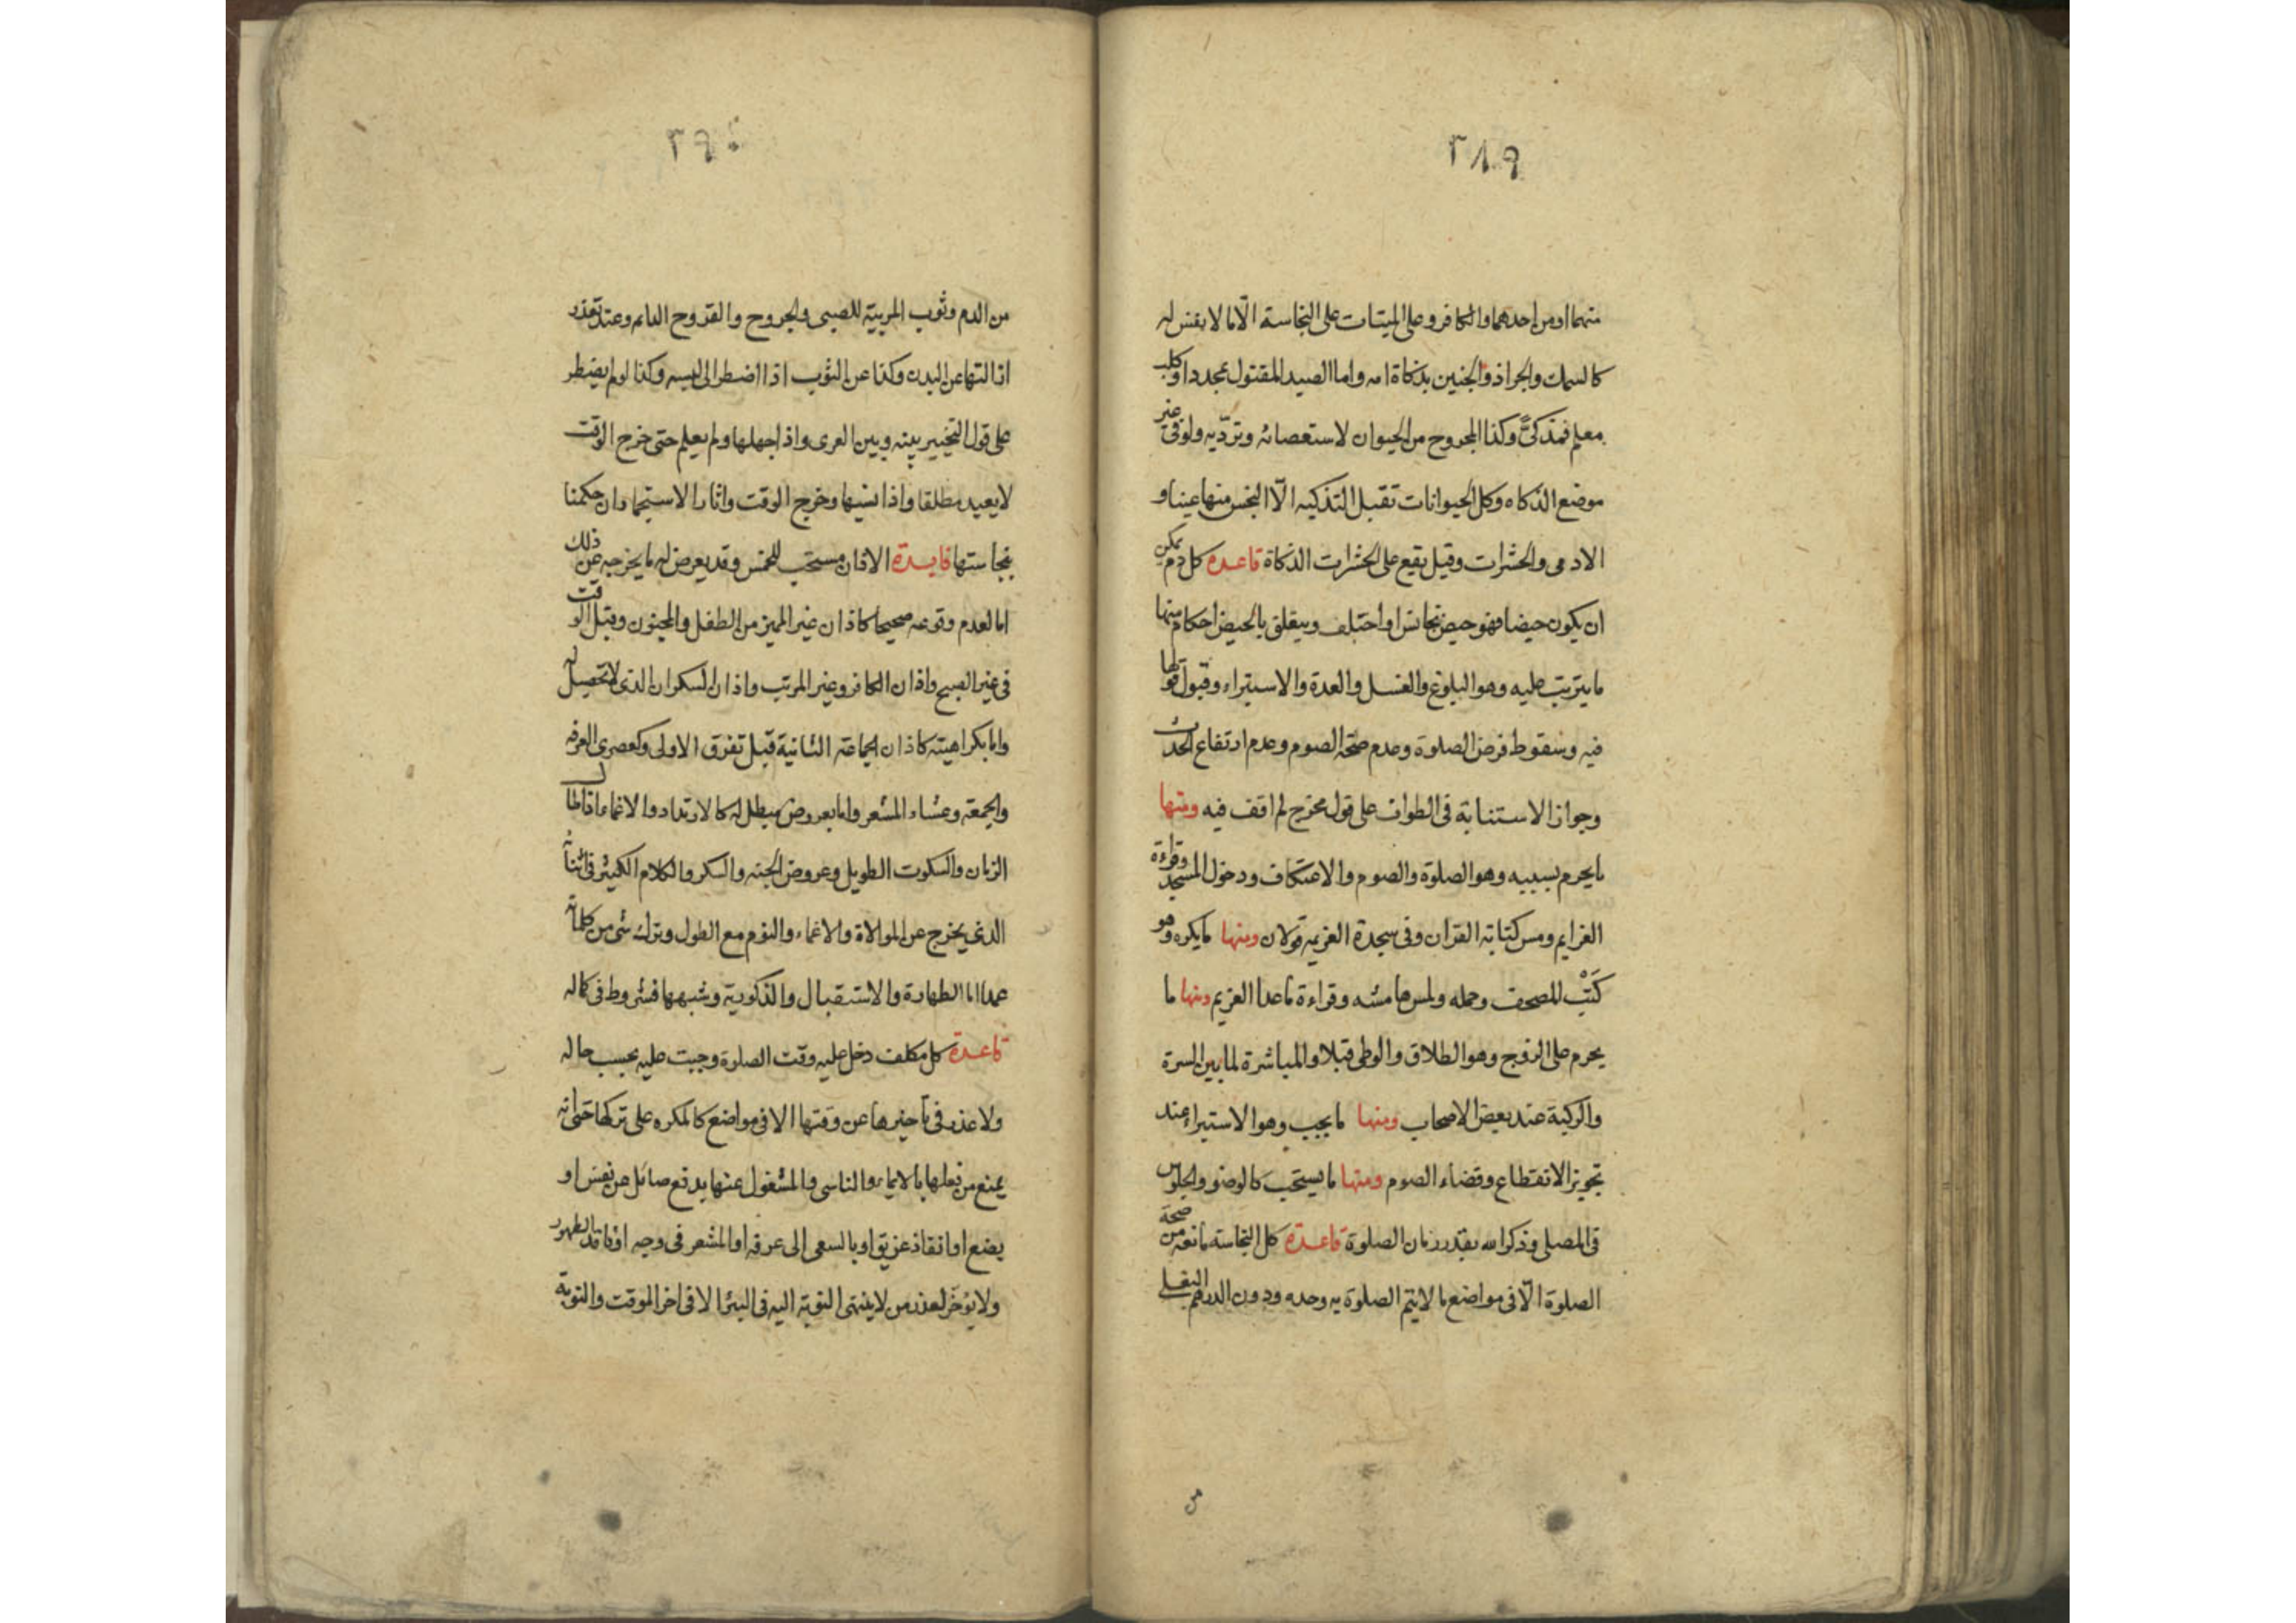 ٣٨٩
منهما او من احدهما والكافر وعلى الميتات على النجاسة الّا ما لا نفس له
كالسمك والجراد والجنين بذكاة امه واما الصيد المقتول بمحدد او كلب
معلم فمذكىًّ وكذا المجروح من الحيوان لاستعصائه وتردّيه ولو فى غير
موضع الذكاه وكل الحيوانات تقبل التذكيه الّا النجس منها عينا و
الادمى والحشرات وقيل يقع على الحشرات الذكاة قاعده كل دم يمكن
ان يكون حيضا فهو حيض تجانس او اختلف ويتعلق بالحيض احكام منها
ما يترتب عليه وهو البلوغ والغسل والعدة والاستبراء وقبول قولها
فيه وسقوط فرض الصلوة وعدم صحة الصوم وعدم ارتفاع الحدث
وجواز الاستنابة فى الطواف على قول مخرج لم اقف فيه ومنها
ما يحرم بسببه وهو الصلوة والصوم والاعتكاف ودخول المسجد وقراءة
العزايم ومس كتابة القران وفى سجدة العزيمه قولان ومنها ما يكره وهو
كَتْب للمصحف وحمله ولمس هامشه وقراءة ما عدا العزيم ومنها ما
يحرم على الزوج وهو الطلاق والوطى قبلا والمباشرة لما بين السرة
والركبة عند بعض الاصحاب ومنها ما يجب وهو الاستبراء عند
تجويز الانقطاع وقضاء الصوم ومنها ما يستحب كالوضوء والجلوس
فى المصلى وذكر الله بقدر زمان الصلوة قاعدة كل النجاسة مانعه من صحة
الصلوة الّا فى مواضع ما لا يتم الصلوة به وحده ودون الدرهم البغلى
٣٩٠
من الدم وثوب المربية للصبى والجروح والقروح الدايم وعند تعذر
ازالتها عن البدن وكذا عن الثوب اذا اضطر الى لبسه وكذا لو لم يضطر
على قول التخيير بينه وبين العرى واذا جهلها ولم يعلم حتى خرج الوقت
لا يعيد مطلقا واذا نسيها وخرج الوقت واثار الاستجمار ان حكمنا
بنجاستها فايدة الاذان مستحب للخمس وقد يعرض له ما يخرجه عن ذلك
اما لعدم وقوعه صحيحا كاذان غير المميز من الطفل والمجنون وقبل الوقت
فى غير الصبح واذان الكافر وغير المرتب واذان السكران الذى لا تحصيل له
واما بكراهيته كاذان الجماعة الثانية قبل تفرق الاولى وكعصرى العرفه
والجمعة وعشاء المشعر واما بعروض مبطل له كالارتداد والاغماء اذا طال
الزمان والسكوت الطويل وعروض الجنه والسكر والكلام الكثير فى اثنائه
الذى يخرج عن الموالاة والاغماء والنوم مع الطول وترك شى من كلماته
عمدا اما الطهارة والاستقبال والذكورية وشبهها فشروط فى كماله
قاعدة كل مكلف دخل عليه وقت الصلوة وجبت عليه بحسب حاله
ولا عذر فى تاخيرها عن وقتها الا فى مواضع كالمكره على تركها حتى انه
يمنع من فعلها بالايماء والناسى والمشغول عنها بدفع صائل عن نفس او
بضع او انقاذ غريق او بالسعى الى عرفه او المشعر فى وجه او فاقد الطهور
ولا يؤخر لعذر من لا ينتهى النوبة اليه فى البئر الا فى اخر الموقت والتوبة